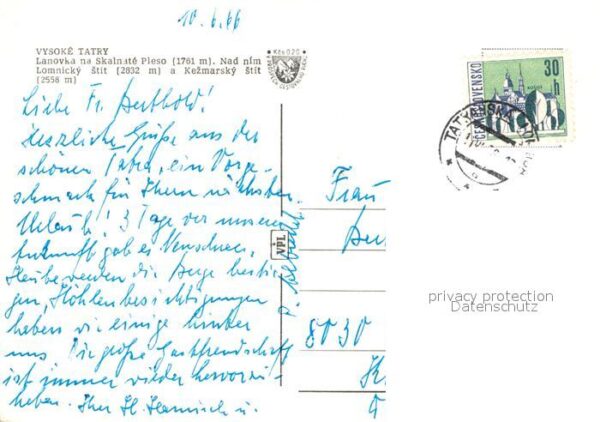 10.6.66
VYSOKÉ TATRY
Lanovka na Skalnaté Pleso (1761 m). Nad ním
Lomnický štít (2632 m) a Kežmarský štít
(2558 m)
Kčs 0,20
30
h
KOŠICE
ČESKOSLOVENSKO
TATRANSKÁ
Liebe Fr. Berthold!
Herzliche Grüße aus der
schönen Tatra, ein Vorge-
schmack für Ihren nächsten
Urlaub! 3 Tage vor unserer
Ankunft gab es Neuschnee,
Heute werden die Berge bestie-
gen, Höhlenbesichtigungen
haben wir einige hinter
uns. Die große Gastfreundschaft
ist immer wieder hervorzu-
heben. Ihr H. u.
Frau
Ber
8030
VPL
privacy protection
Datenschutz